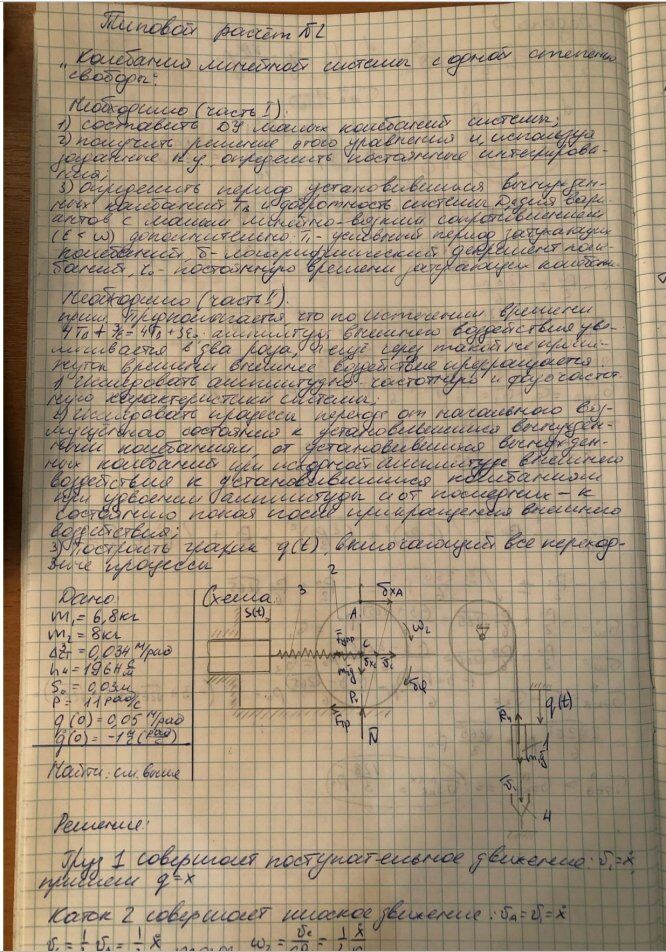 Типовой расчёт №2
"Колебания линейной системы с одной степенью
свободы".
Необходимо (часть I):
1) составить ДУ малых колебаний системы;
2) получить решение этого уравнения и, используя
заданные н.у. определить постоянные интегрирова-
ния;
3) определить период установившихся вынужден-
ных колебаний Tв и добротность системы D. Для вари-
антов с малым линейно-вязким сопротивлением
(ε < ω) дополнительно T₁ - условный период затухающих
колебаний, δ - логарифмический декремент коле-
баний, τ₀ - постоянную времени затухающих колебан.
Необходимо (часть II):
предполагается, что по истечении времени
амплитуда внешнего воздействия уве-
личивается в два раза, а ещё через такой же проме-
жуток времени внешнее воздействие прекращается
1) исследовать амплитудно-частотную и фазочастот-
ную характеристики системы;
2) исследовать процессы перехода от начального воз-
мущённого состояния к установившимся вынужден-
ным колебаниям, от установившихся вынужден-
ных колебаний при исходной амплитуде внешнего
воздействия к установившимся колебаниям
при удвоении амплитуды и от последних - к
состоянию покоя после прекращения внешнего
воздействия;
3) построить график q(t), включающий все переход-
ные процессы
Дано:
m₁ = 6,8кг
m₂ = 8кг
= 0,034 м/рад
h₄ = 19,6
S₀ = 0,03м
p = 11 рад/с
q(0) = 0,05 м/рад
q̇(0) = -1
Найти: см. выше
Схема:
3
2
S(t)
A
δx_A
ω₂
F̄упр
C
δx_c
m₂ḡ
δφ
P
Fтр
N̄
R̄₄
q(t)
1
m₁ḡ
4
Решение:
Груз 1 совершает поступательное движение: v₁=ẋ,
примем q=x
Каток 2 совершает плоское движение: v_A=v₁=ẋ